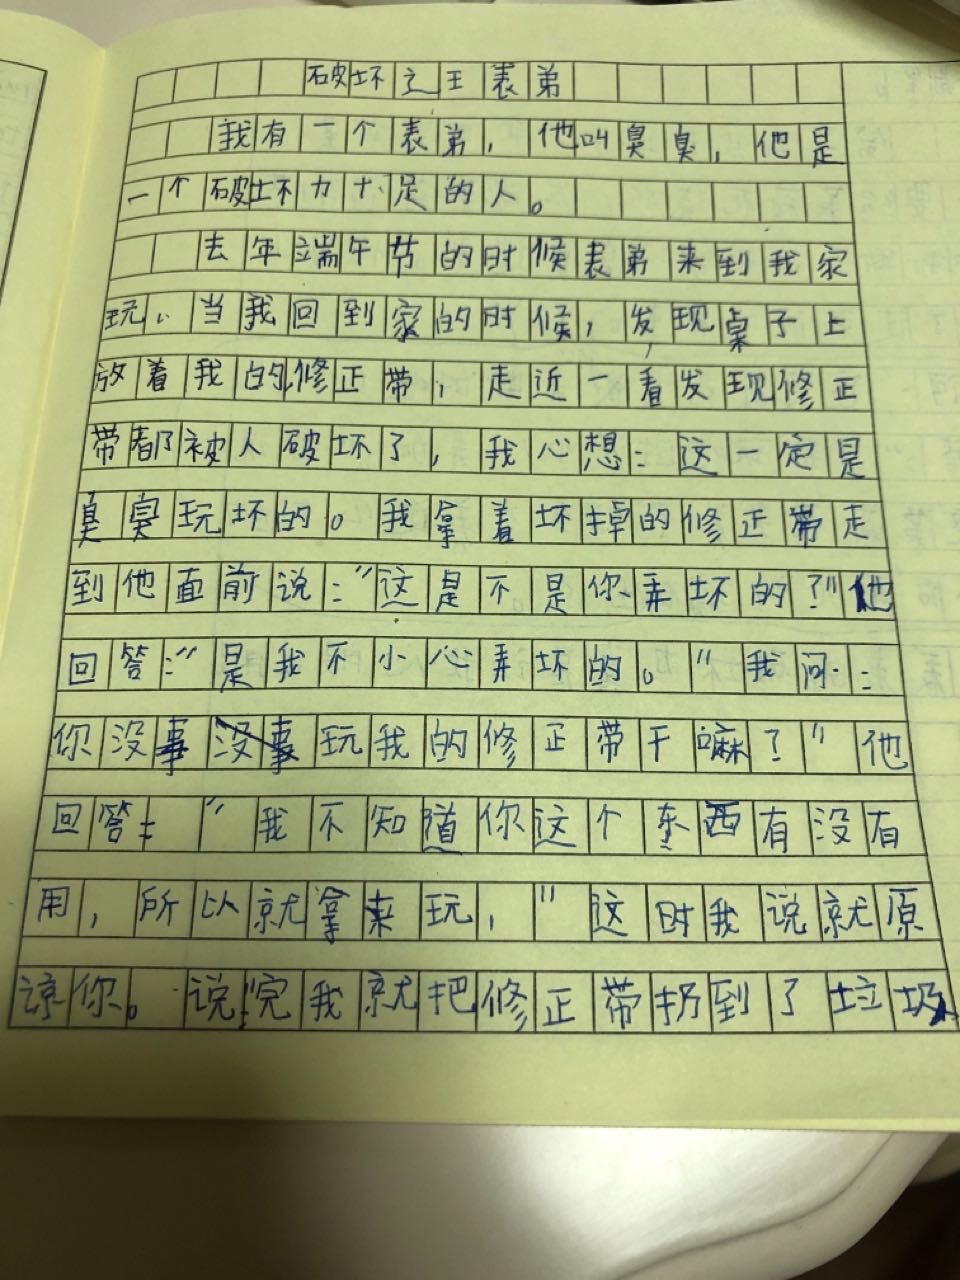 破坏之王表弟
我有一个表弟，他叫臭臭，他是
一个破坏力十足的人。
去年端午节的时候表弟来到我家
玩、当我回到家的时候，发现桌子上
放着我的修正带，走近一看发现修正
带都被人破坏了，我心想：这一定是
臭臭玩坏的。我拿着坏掉的修正带走
到他面前说：“这是不是你弄坏的？”他
回答：“是我不小心弄坏的。”我问：
你没事没事玩我的修正带干嘛？”他
回答：“我不知道你这个东西有没有
用，所以就拿来玩，”这时我说就原
谅你。说完我就把修正带扔到了垃圾